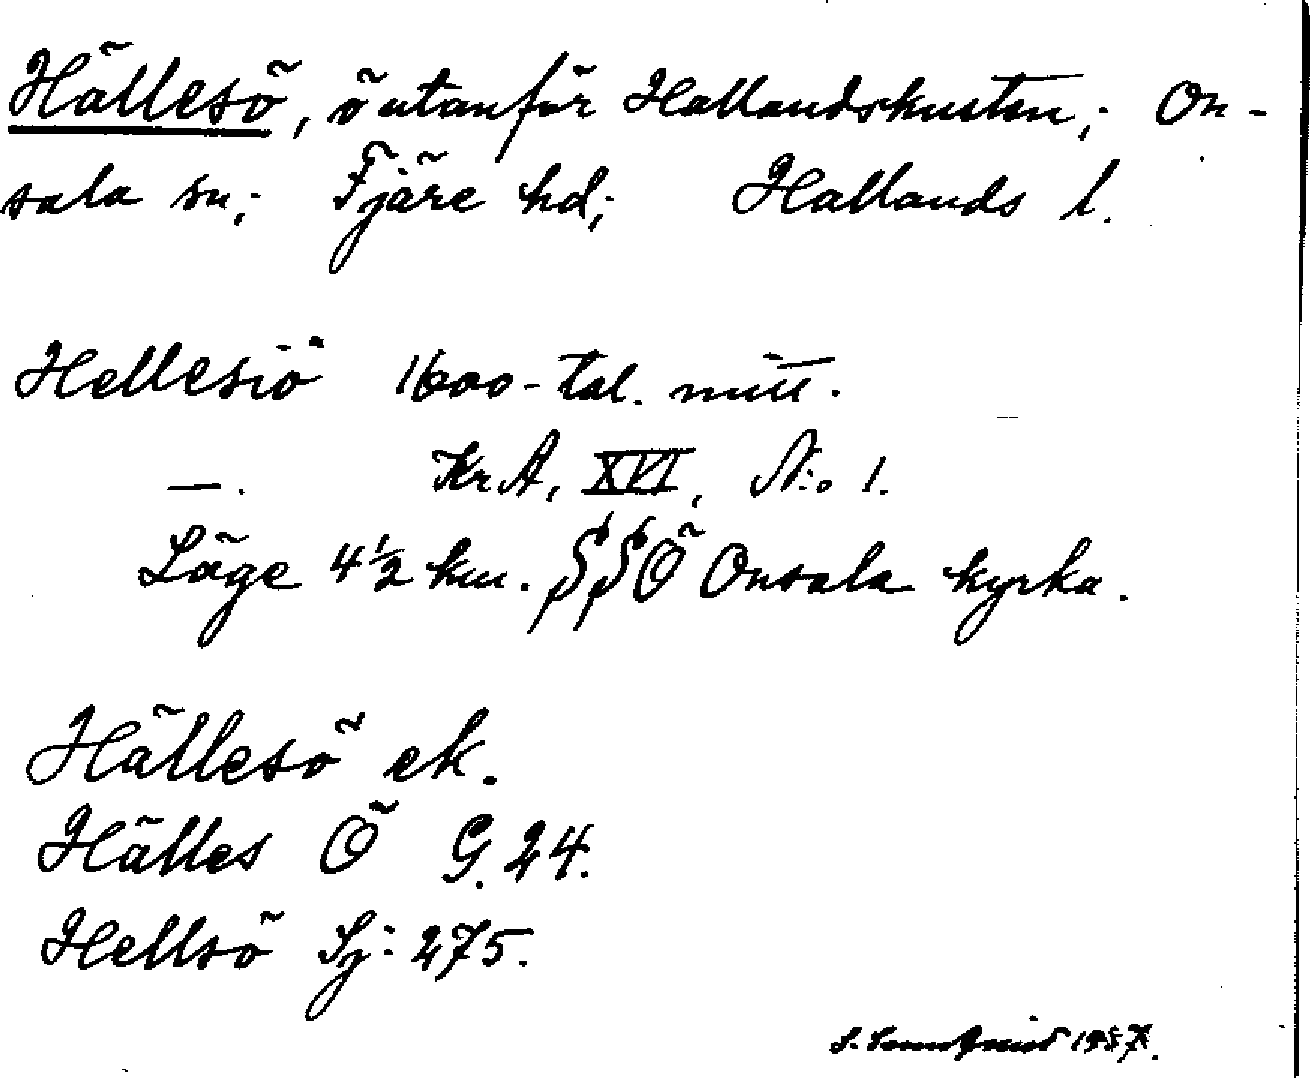 Hällesö, ö utanför Hallandskusten; On-
sala sn; Fjäre hd; Hallands l.
Hellesiö 1600-tal. mitt.
—. KrA, XVI, N:o 1.
Läge 4½ km. SSÖ Onsala kyrka.
Hällesö ek.
Hälles Ö G. 24.
Hellsö Sj: 275.
S. 1957.